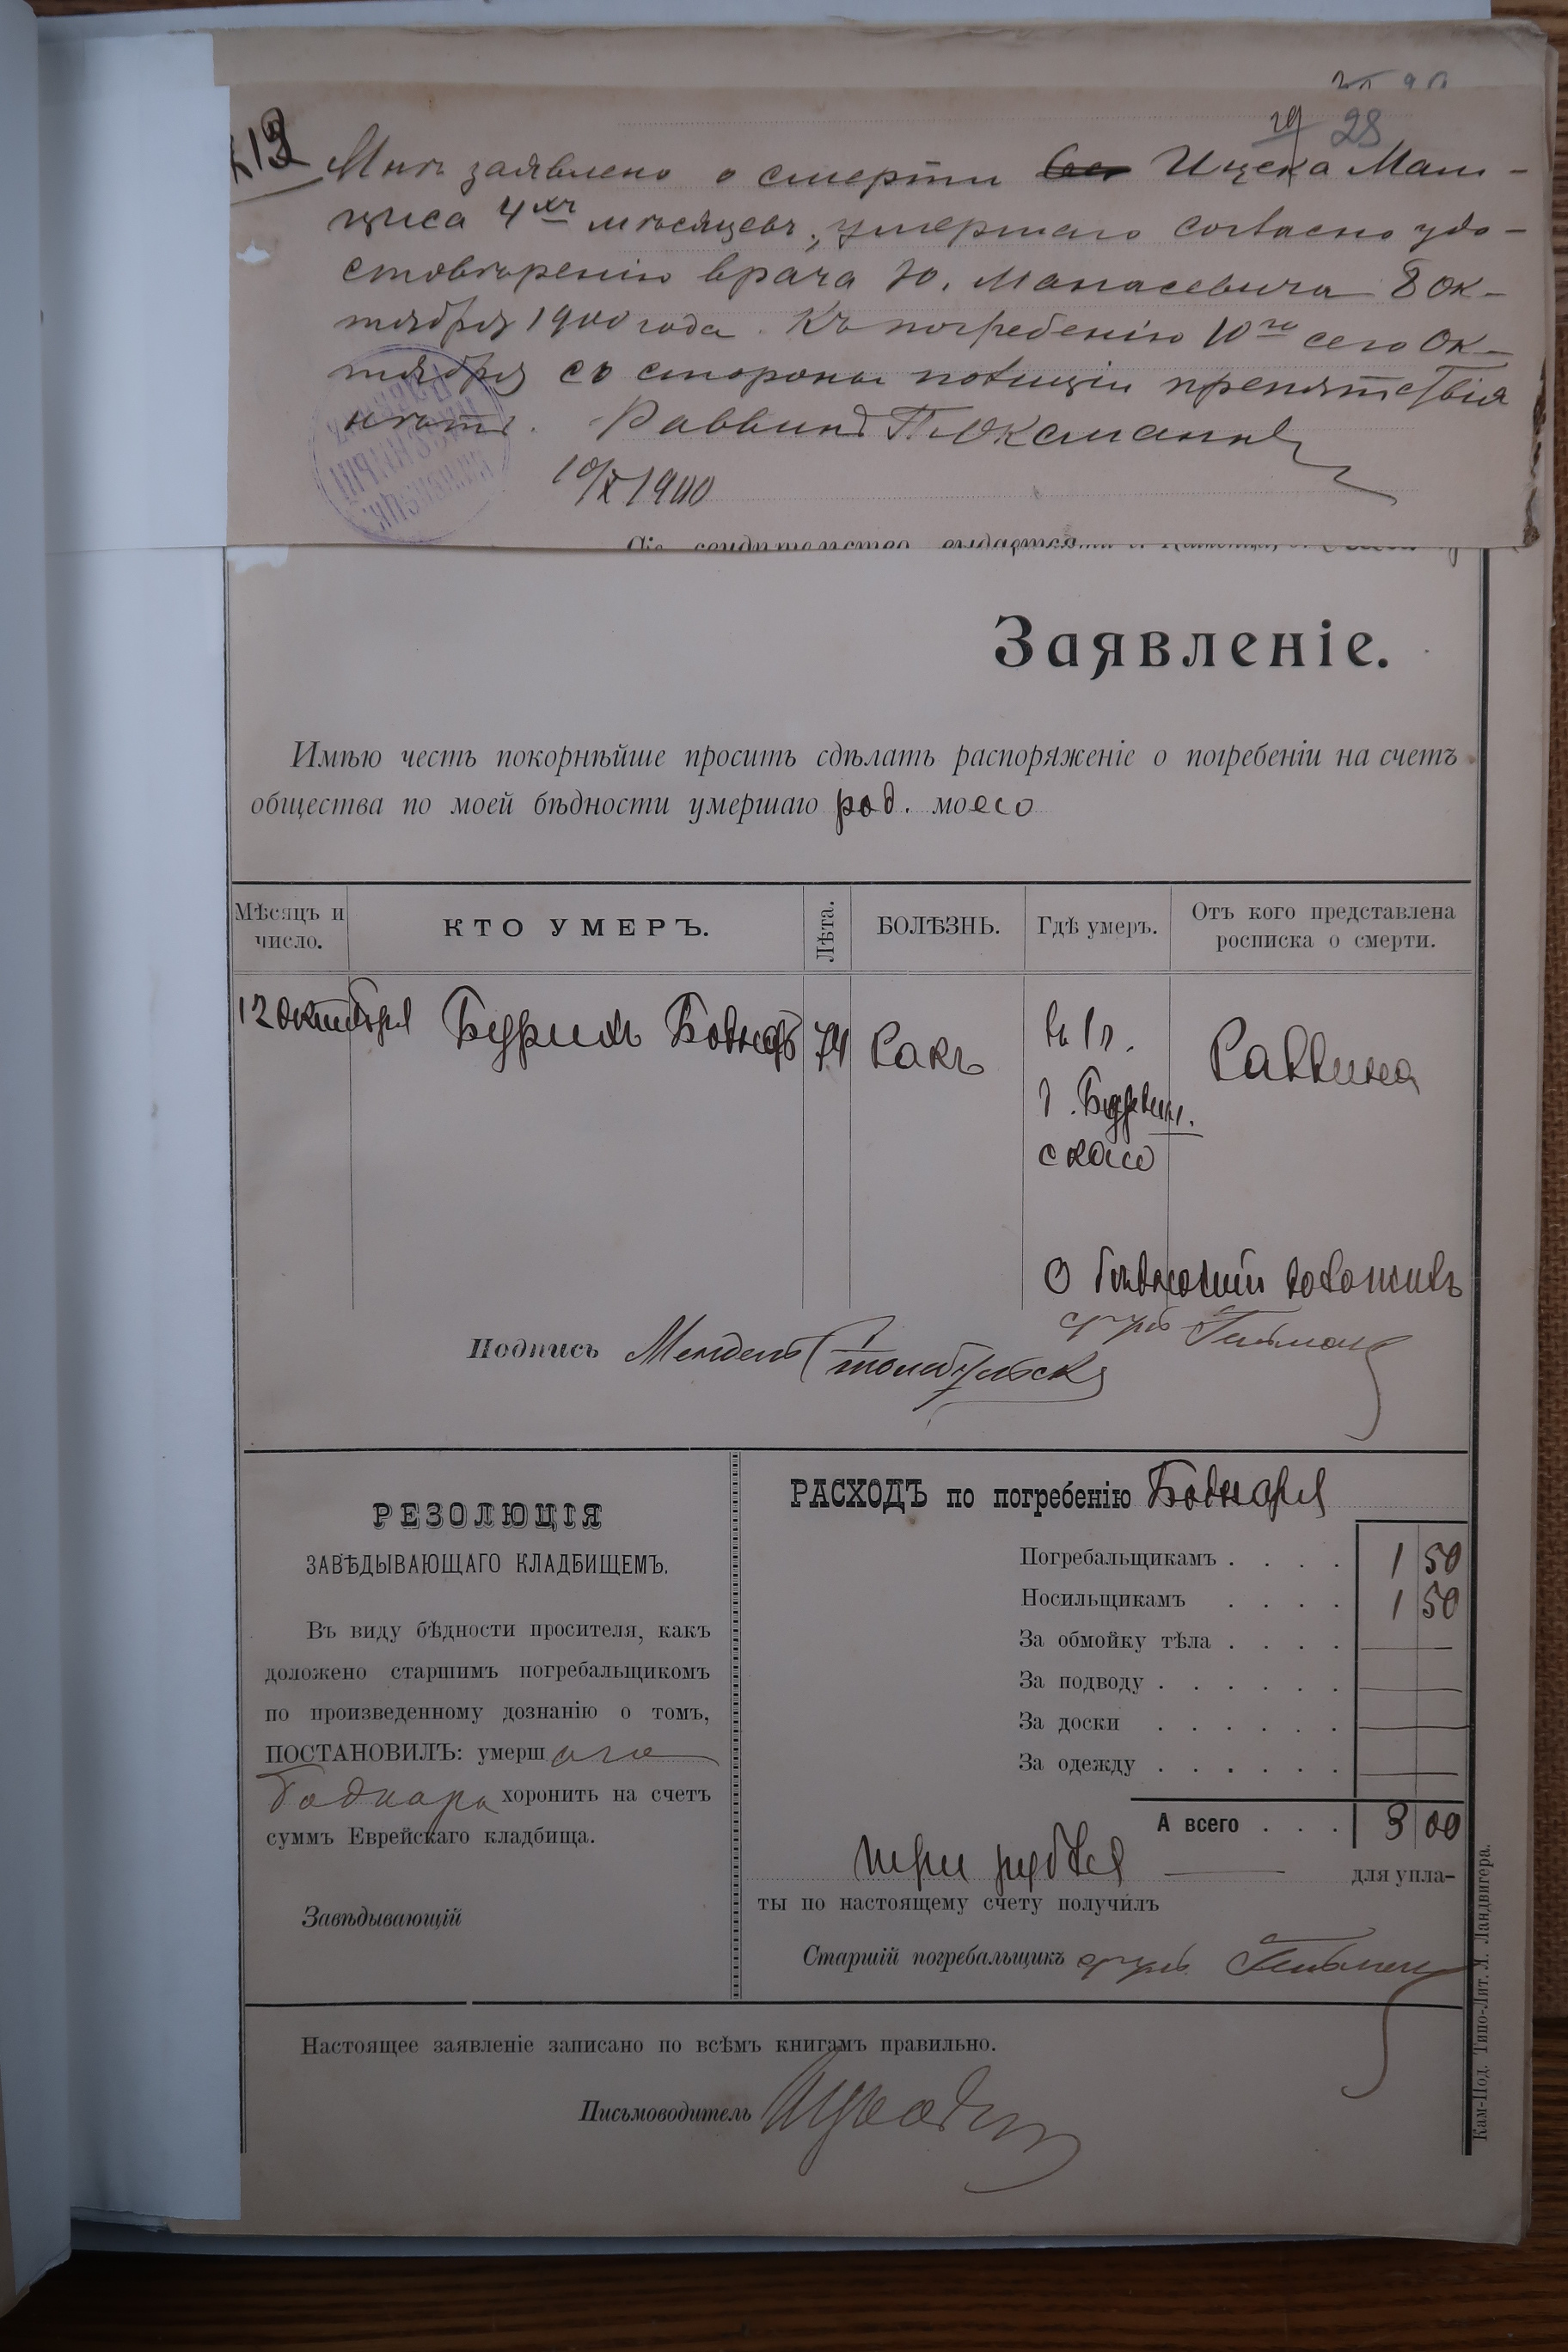 28
Мнѣ заявлено о смерти Ицека Маи-
циса 4хъ мѣсяцевъ, умершаго согласно удо-
стовѣренію врача Ю. Манасевича 8 Ок-
тября 1900 года. Къ погребенію 10го сего Ок-
тября со стороны полиціи препятствія
нѣтъ. Раввинъ
10/X 1900
Заявленіе.
Имѣю честь покорнѣйше просить сдѣлать распоряженіе о погребеніи на счетъ
общества по моей бѣдности умершаго род. моего
Мѣсяцъ и число. КТО УМЕРЪ. Лѣта. БОЛѢЗНЬ. Гдѣ умеръ. Отъ кого представлена росписка о смерти.
12 октября Бурихъ Боднаръ 74 Ракъ Раввина
ского
О бѣдности доложилъ
Подпись Мендель
РЕЗОЛЮЦІЯ
ЗАВѢДЫВАЮЩАГО КЛАДБИЩЕМЪ.
Въ виду бѣдности просителя, какъ
доложено старшимъ погребальщикомъ
по произведенному дознанію о томъ,
ПОСТАНОВИЛЪ: умершаго
Боднара хоронить на счетъ
суммъ Еврейскаго кладбища.
Завѣдывающій
РАСХОДЪ по погребенію Боднаря
Погребальщикамъ . . . . 1 50
Носильщикамъ . . . . 1 50
За обмойку тѣла . . . . —
За подводу . . . . . . —
За доски . . . . . . —
За одежду . . . . . . —
А всего . . . 3 00
три рубля — для упла-
ты по настоящему счету получилъ
Старшій погребальщикъ
Настоящее заявленіе записано по всѣмъ книгамъ правильно.
Письмоводитель
Кам-Под. Типо-Лит. Я. Ландвигера.